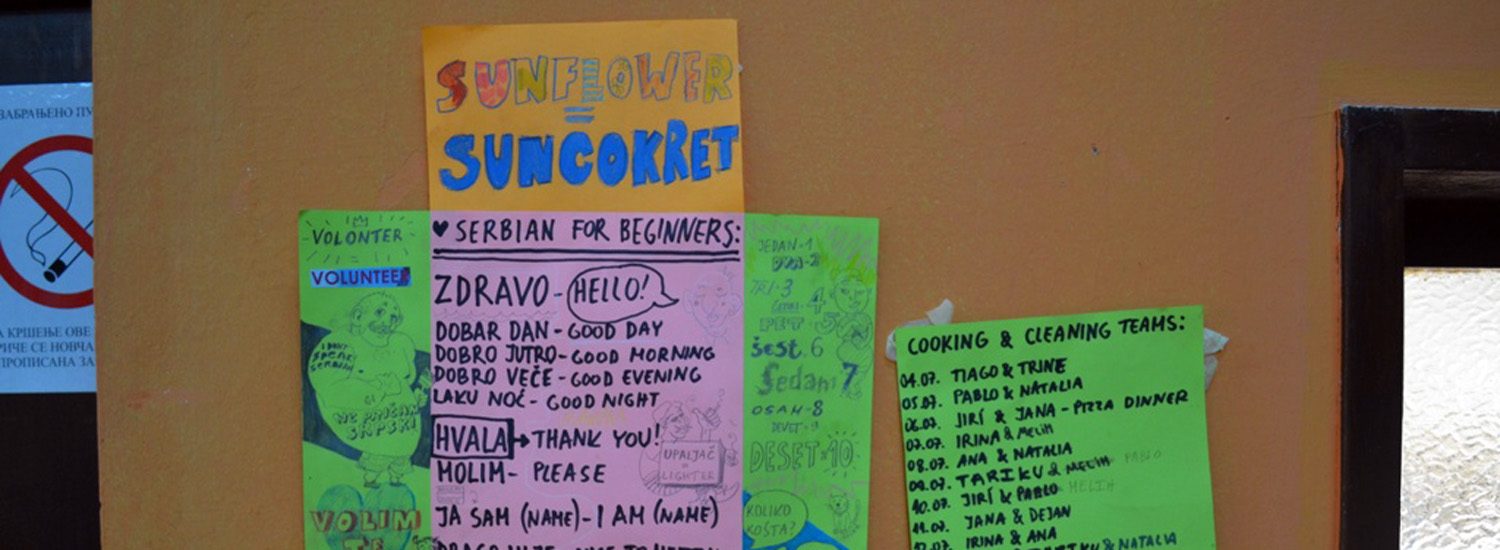 ЗАБРАЊЕНО ПУ
КРШЕЊЕ ОВЕ
РИЧЕ СЕ НОВЧА
ПРОПИСАНА ЗА
SUNFLOWER
=
SUNČOKRET
VOLONTER
VOLUNTEER
I DON'T
SPEAK
SERBIAN
NE PRIČAM
SRPSKI
VOLIM
TE
♥ SERBIAN FOR BEGINNERS:
ZDRAVO - HELLO!
DOBAR DAN - GOOD DAY
DOBRO JUTRO - GOOD MORNING
DOBRO VEČE - GOOD EVENING
LAKU NOĆ - GOOD NIGHT
HVALA → THANK YOU!
MOLIM - PLEASE
UPALJAČ
LIGHTER
JA SAM (NAME) - I AM (NAME)
JEDAN-1
DVA-2
TRI-3
4
PET-5
šest 6
Sedam 7
OSAM-8
DEVET-9
DESET-10
KOLIKO
KOŠTA?
COOKING & CLEANING TEAMS:
04.07. TIAGO & TRINE
05.07. PABLO & NATALIA
06.07. JIRÍ & JANA - PIZZA DINNER
07.07. IRINA & MELIH
08.07. ANA & NATALIA
09.07. TARIKU & MELIH PABLO
10.07. JIRÍ & PABLO MELIH
11.07. JANA & DEJAN
12.07. IRINA & ANA
& NATALIA